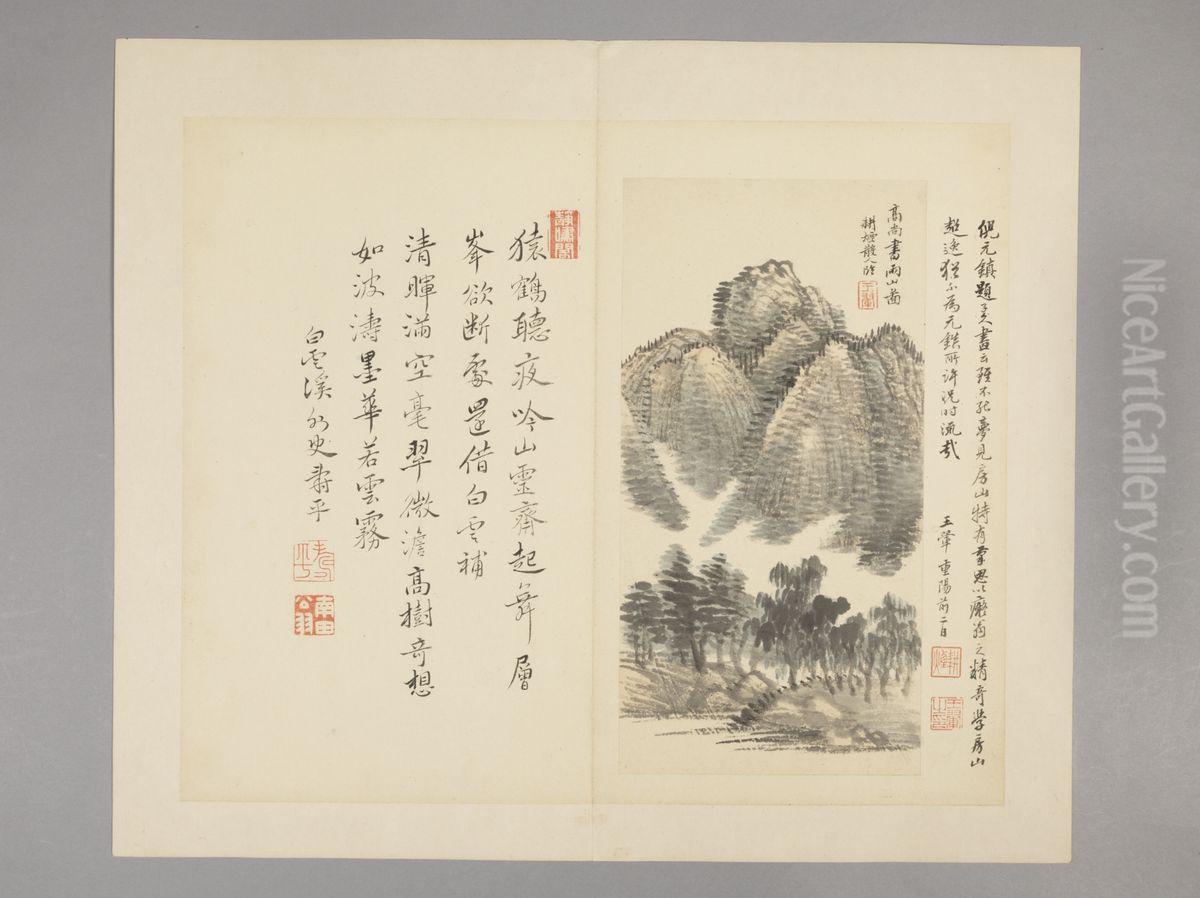 倪元鎮題子久畫云雖不能夢見房山特有筆思以癡翁之精奇學房山
超逸猶不為元鎮所許況時流哉
王翬重陽前二日
王翬之印
高尚書雨山圖
耕煙散人臨
王翬
猿鶴聽夜吟山靈齊起舞層
峯欲断處還借白雲補
清暉滿空毫翠微澹高樹奇想
如波濤墨華若雲霧
白雲溪外史壽平
NiceArtGallery.com